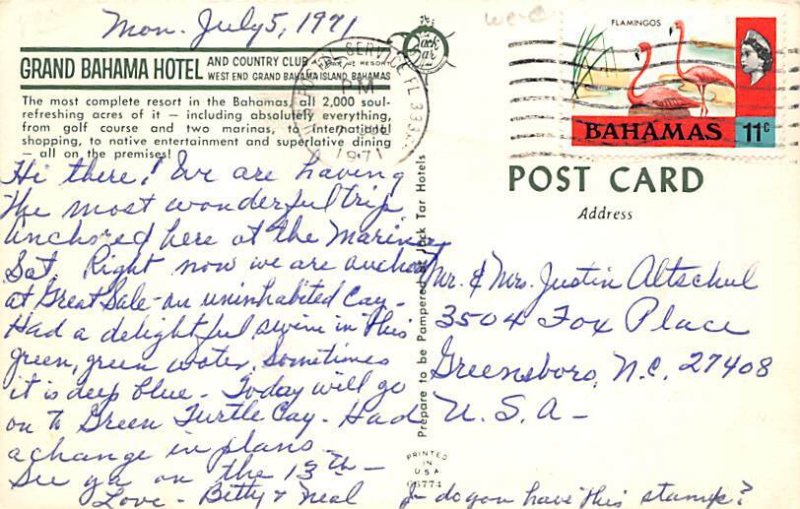 Mon. July 5, 1971
GRAND BAHAMA HOTEL AND COUNTRY CLUB
WEST END GRAND BAHAMA ISLAND, BAHAMAS
The most complete resort in the Bahamas, all 2,000 soul-
refreshing acres of it — including absolutely everything,
from golf course and two marinas, to international
shopping, to native entertainment and superlative dining
— all on the premises!
Hi there! We are having
the most wonderful trip.
Anchored here at the Marina
Sat. Right now we are anchored
at Great Sale - an uninhabited Cay.
Had a delightful swim in this
green, green water. Sometimes
it is deep blue - Today will go
on to Green Turtle Cay - Had
a change in plans -
See ya on the 13th -
Love - Betty & Neal
J - do you have this stamp?
Prepare to be Pampered at Jack Tar Hotels
PRINTED
IN
USA
Jack
Tar
PM
1971
FLAMINGOS
BAHAMAS 11c
POST CARD
Address
Mr. & Mrs. Justin Altschul
3504 Fox Place
Greensboro, N.C. 27408
U.S.A -